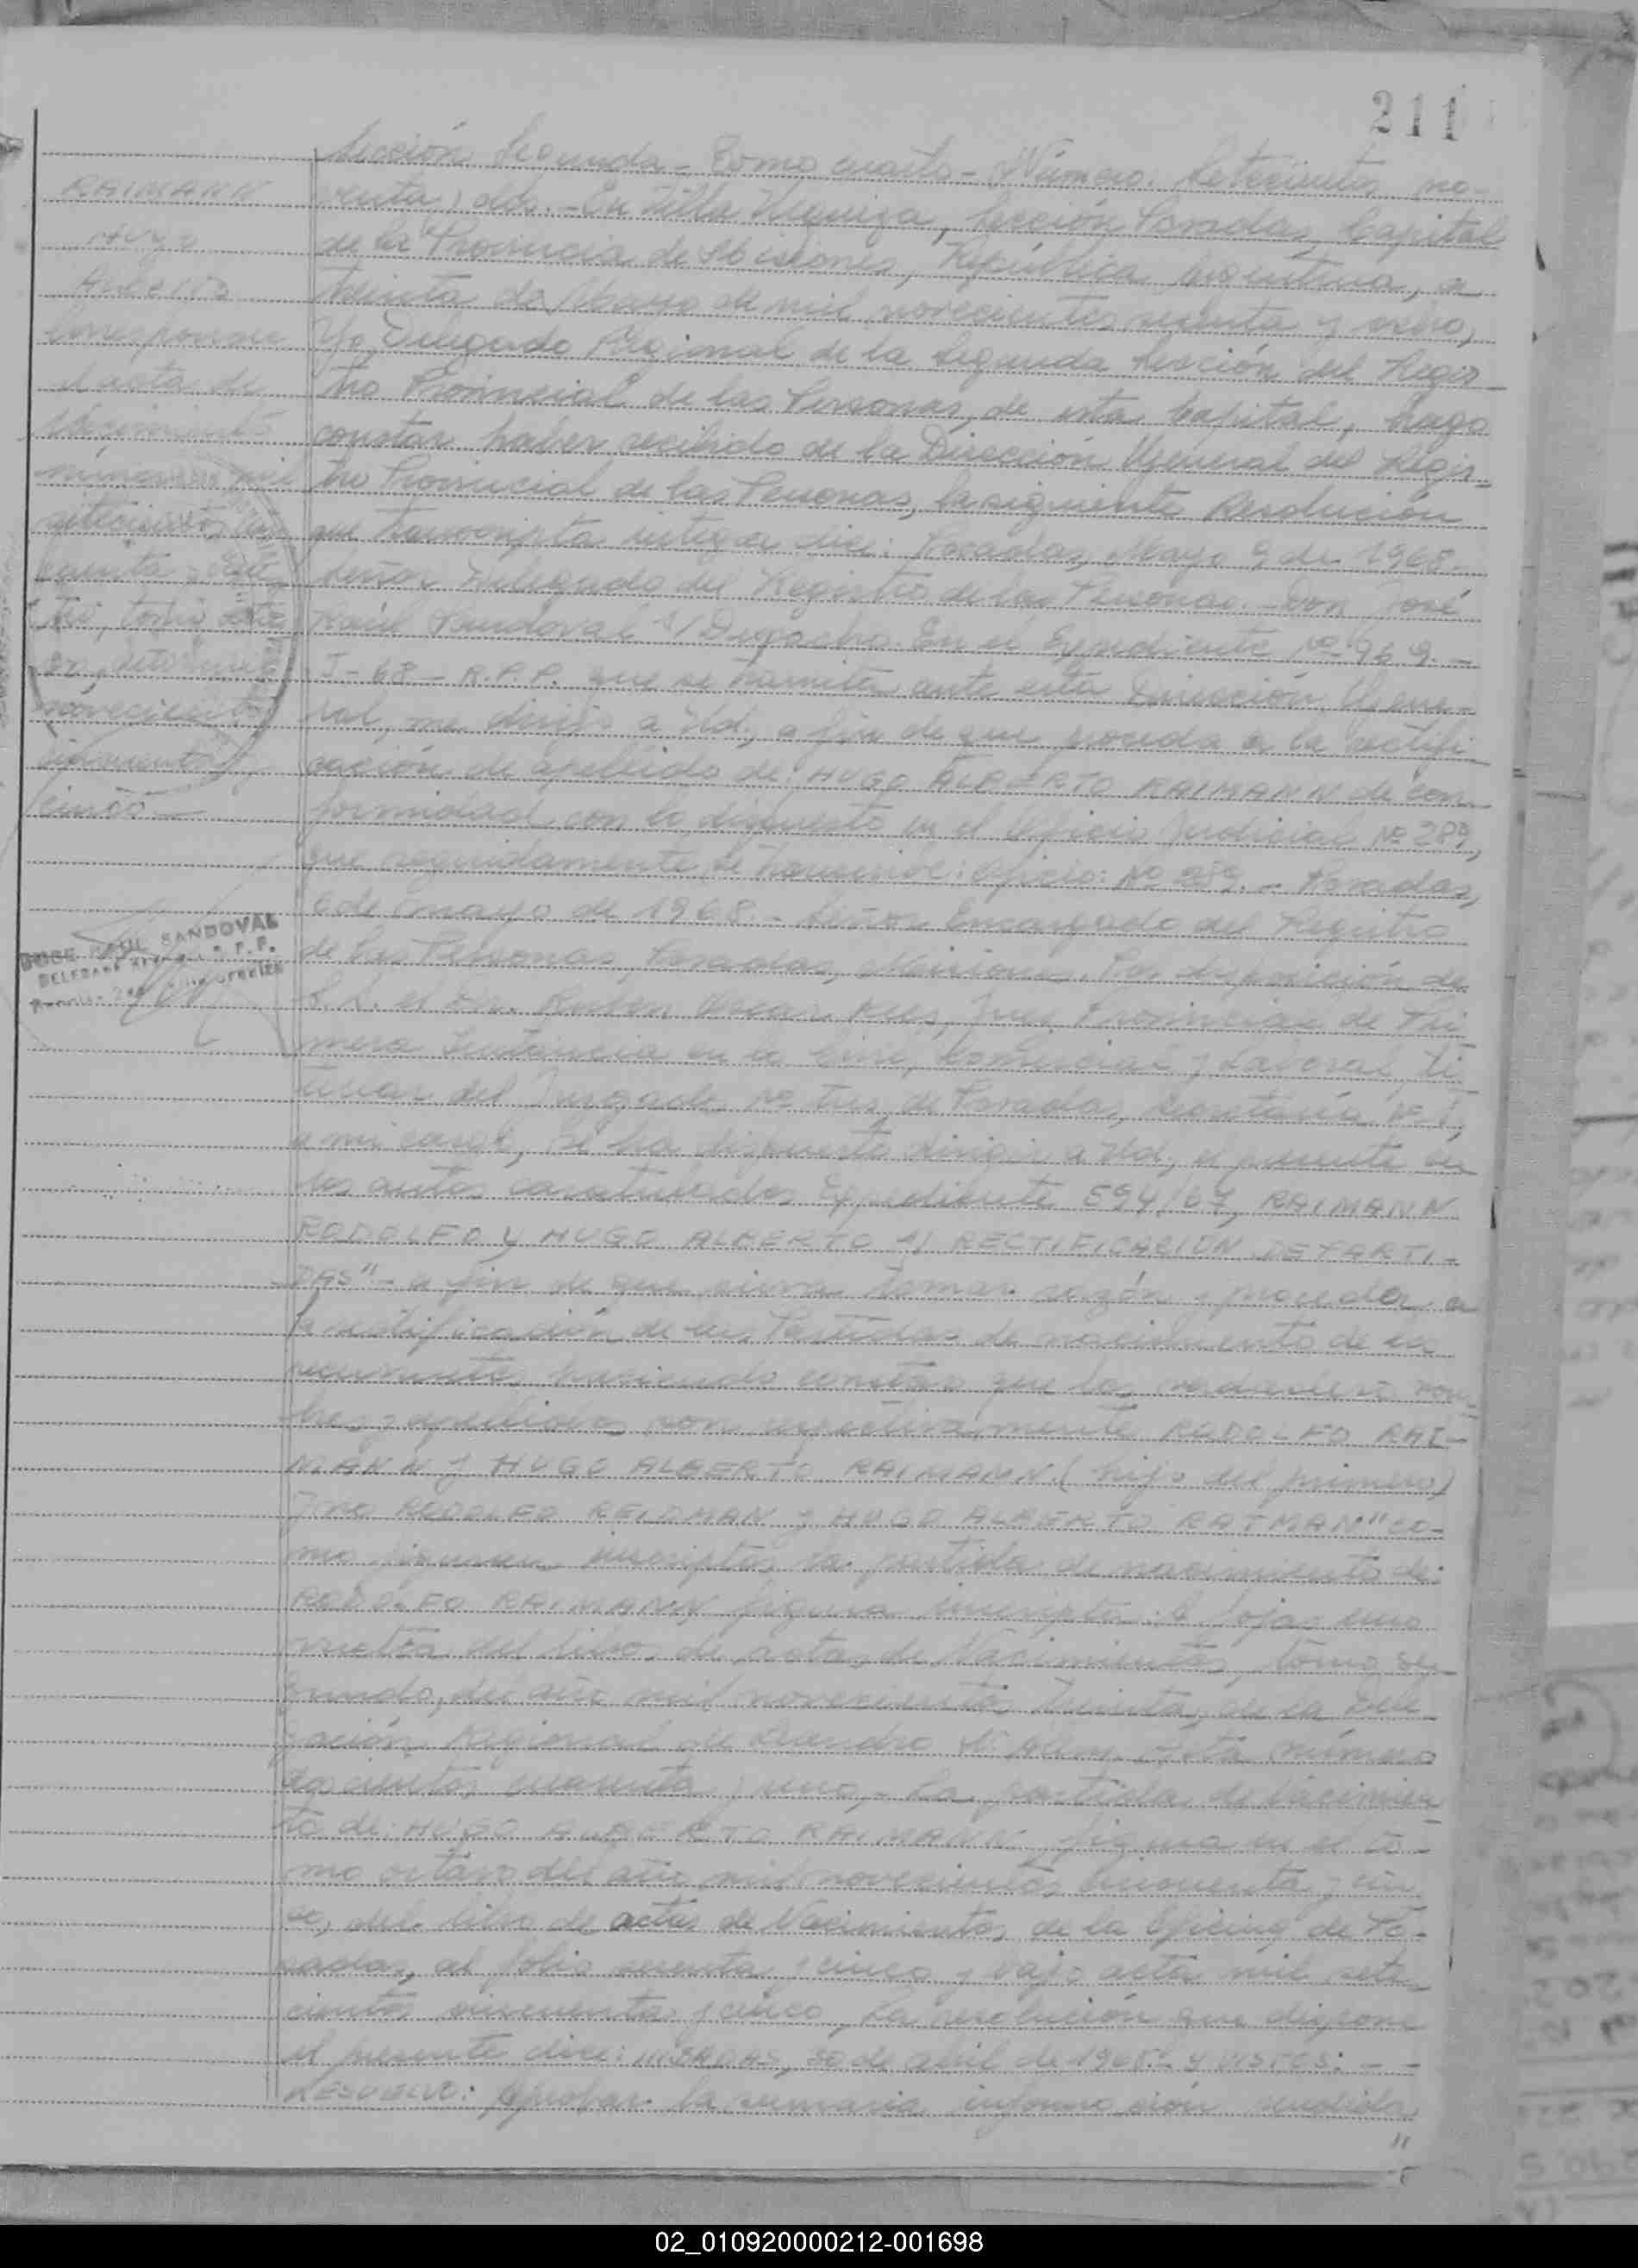 211
Sección Segunda - Tomo cuarto - Número: Setecientos no-
venta y dos. - En Villa Urquiza, Sección Posadas, Capital
de la Provincia de Misiones, República Argentina, a
treinta de Mayo de mil novecientos sesenta y ocho,
Yo, Delegado Regional de la Segunda Sección del Regis-
tro Provincial de las Personas, de esta Capital, hago
constar haber recibido de la Dirección General del Regis-
tro Provincial de las Personas, la siguiente Resolución
que transcripta íntegra dice: Posadas, Mayo 9 de 1968.
Señor Delegado del Registro de las Personas. - Don José
Raúl Sandoval S/Despacho. En el Expediente Nº 969. -
J-68 - R.P.P. que se tramita ante esta Dirección Gene-
ral, me dirijo a Ud., a fin de que proceda a la rectifi-
cación de apellido de: HUGO ALBERTO RAIMANN de con-
formidad con lo dispuesto en el Oficio Judicial Nº 289,
que seguidamente se transcribe: Oficio: Nº 289. - Posadas,
6 de mayo de 1968. - Señor Encargado del Registro
de las Personas, Posadas, Misiones. Por disposición de
S.S. el Dr. Ruben Oscar Juez Provincial de Pri-
mera Instancia en lo Civil, Comercial y Laboral, ti-
tular del Juzgado Nº tres de Posadas, Secretaría Nº 1,
a mi cargo, se ha dispuesto dirigir a Ud., el presente en
los autos caratulados Expediente 594/67, RAIMANN
RODOLFO y HUGO ALBERTO S/ RECTIFICACIÓN DE PARTI-
DAS" - a fin de que sirva tomar razón y proceder a
la rectificación de las Partidas de nacimiento de los
recurrentes haciendo constar que los verdaderos nom-
bres y apellidos son respectivamente RODOLFO RAI-
MANN y HUGO ALBERTO RAIMANN (hijo del primero)
y no RODOLFO REIDMAN y HUGO ALBERTO RAIMAN" co-
mo figuran inscriptos la partida de nacimiento de:
RODOLFO RAIMANN figura inscripta: A fojas uno
vuelta del libro de actas de Nacimientos, tomo se-
gundo, del año mil novecientos treinta, de la Dele-
gación Regional de Leandro N. Alem. Acta número
doscientos cuarenta y uno, - La partida de Nacimien-
to de: HUGO ALBERTO RAIMANN, figura en el to-
mo octavo del año mil novecientos cincuenta y cin-
co, del libro de actas de Nacimientos de la Oficina de Po-
sadas, al folio sesenta y cinco y bajo acta mil sete-
cientos cincuenta y cinco, La resolución que dispone
el presente dice: POSADAS, 30 de abril de 1968. - Y VISTOS: - -
RESUELVO: Aprobar la sumaria información rendida
"
RAIMANN
Hugo
Alberto
Corresponde
el acta de
Nacimiento
número mil
setecientos cin-
cuenta y
tomo octa-
vo, del año mil
novecientos
cincuenta y
cinco. -
JOSE RAUL SANDOVAL
DELEGADO REGIONAL R.P.P.
02_010920000212-001698